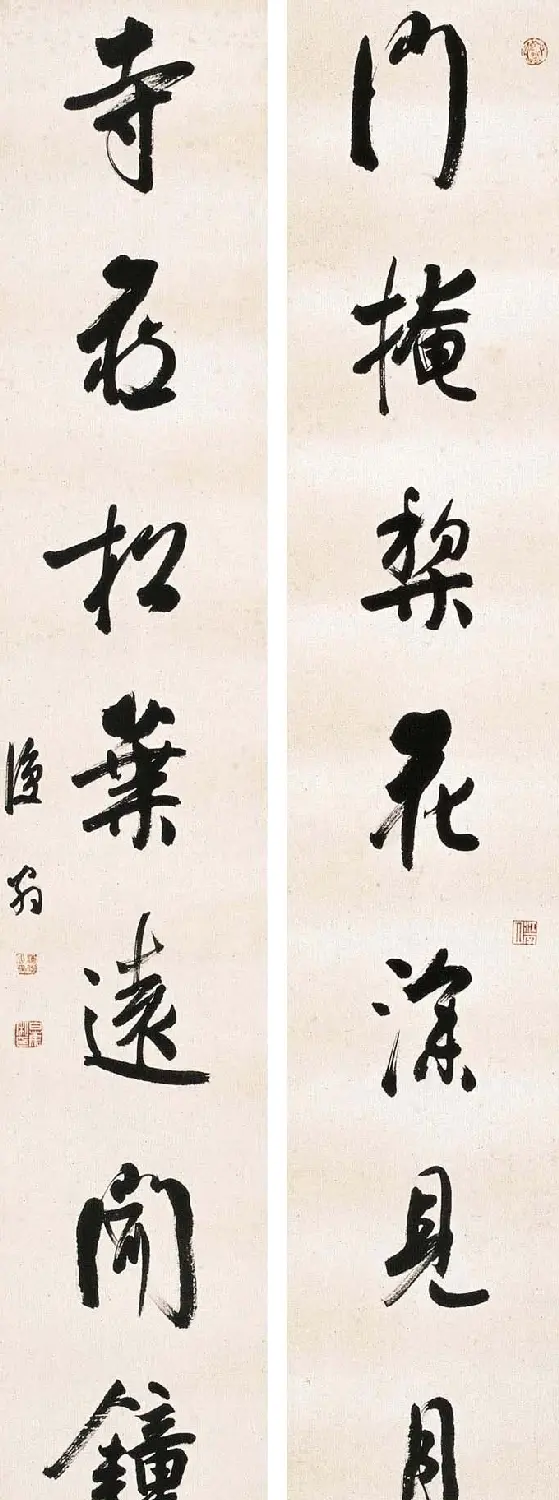 門掩棃花深見月
寺藏松葉遠聞鐘
翁